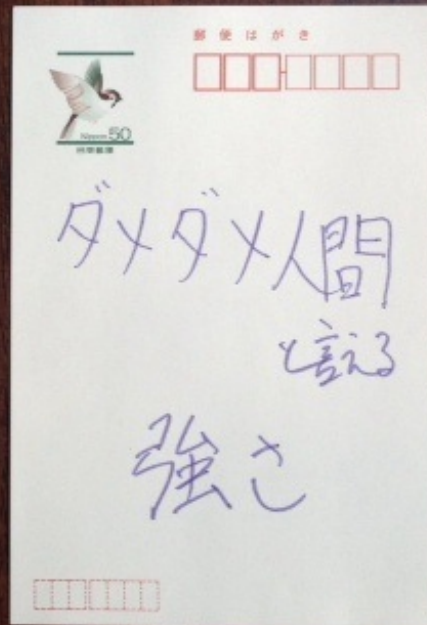 郵便はがき
Nippon 50
日本郵便
ダメダメ人間
と言える
強さ